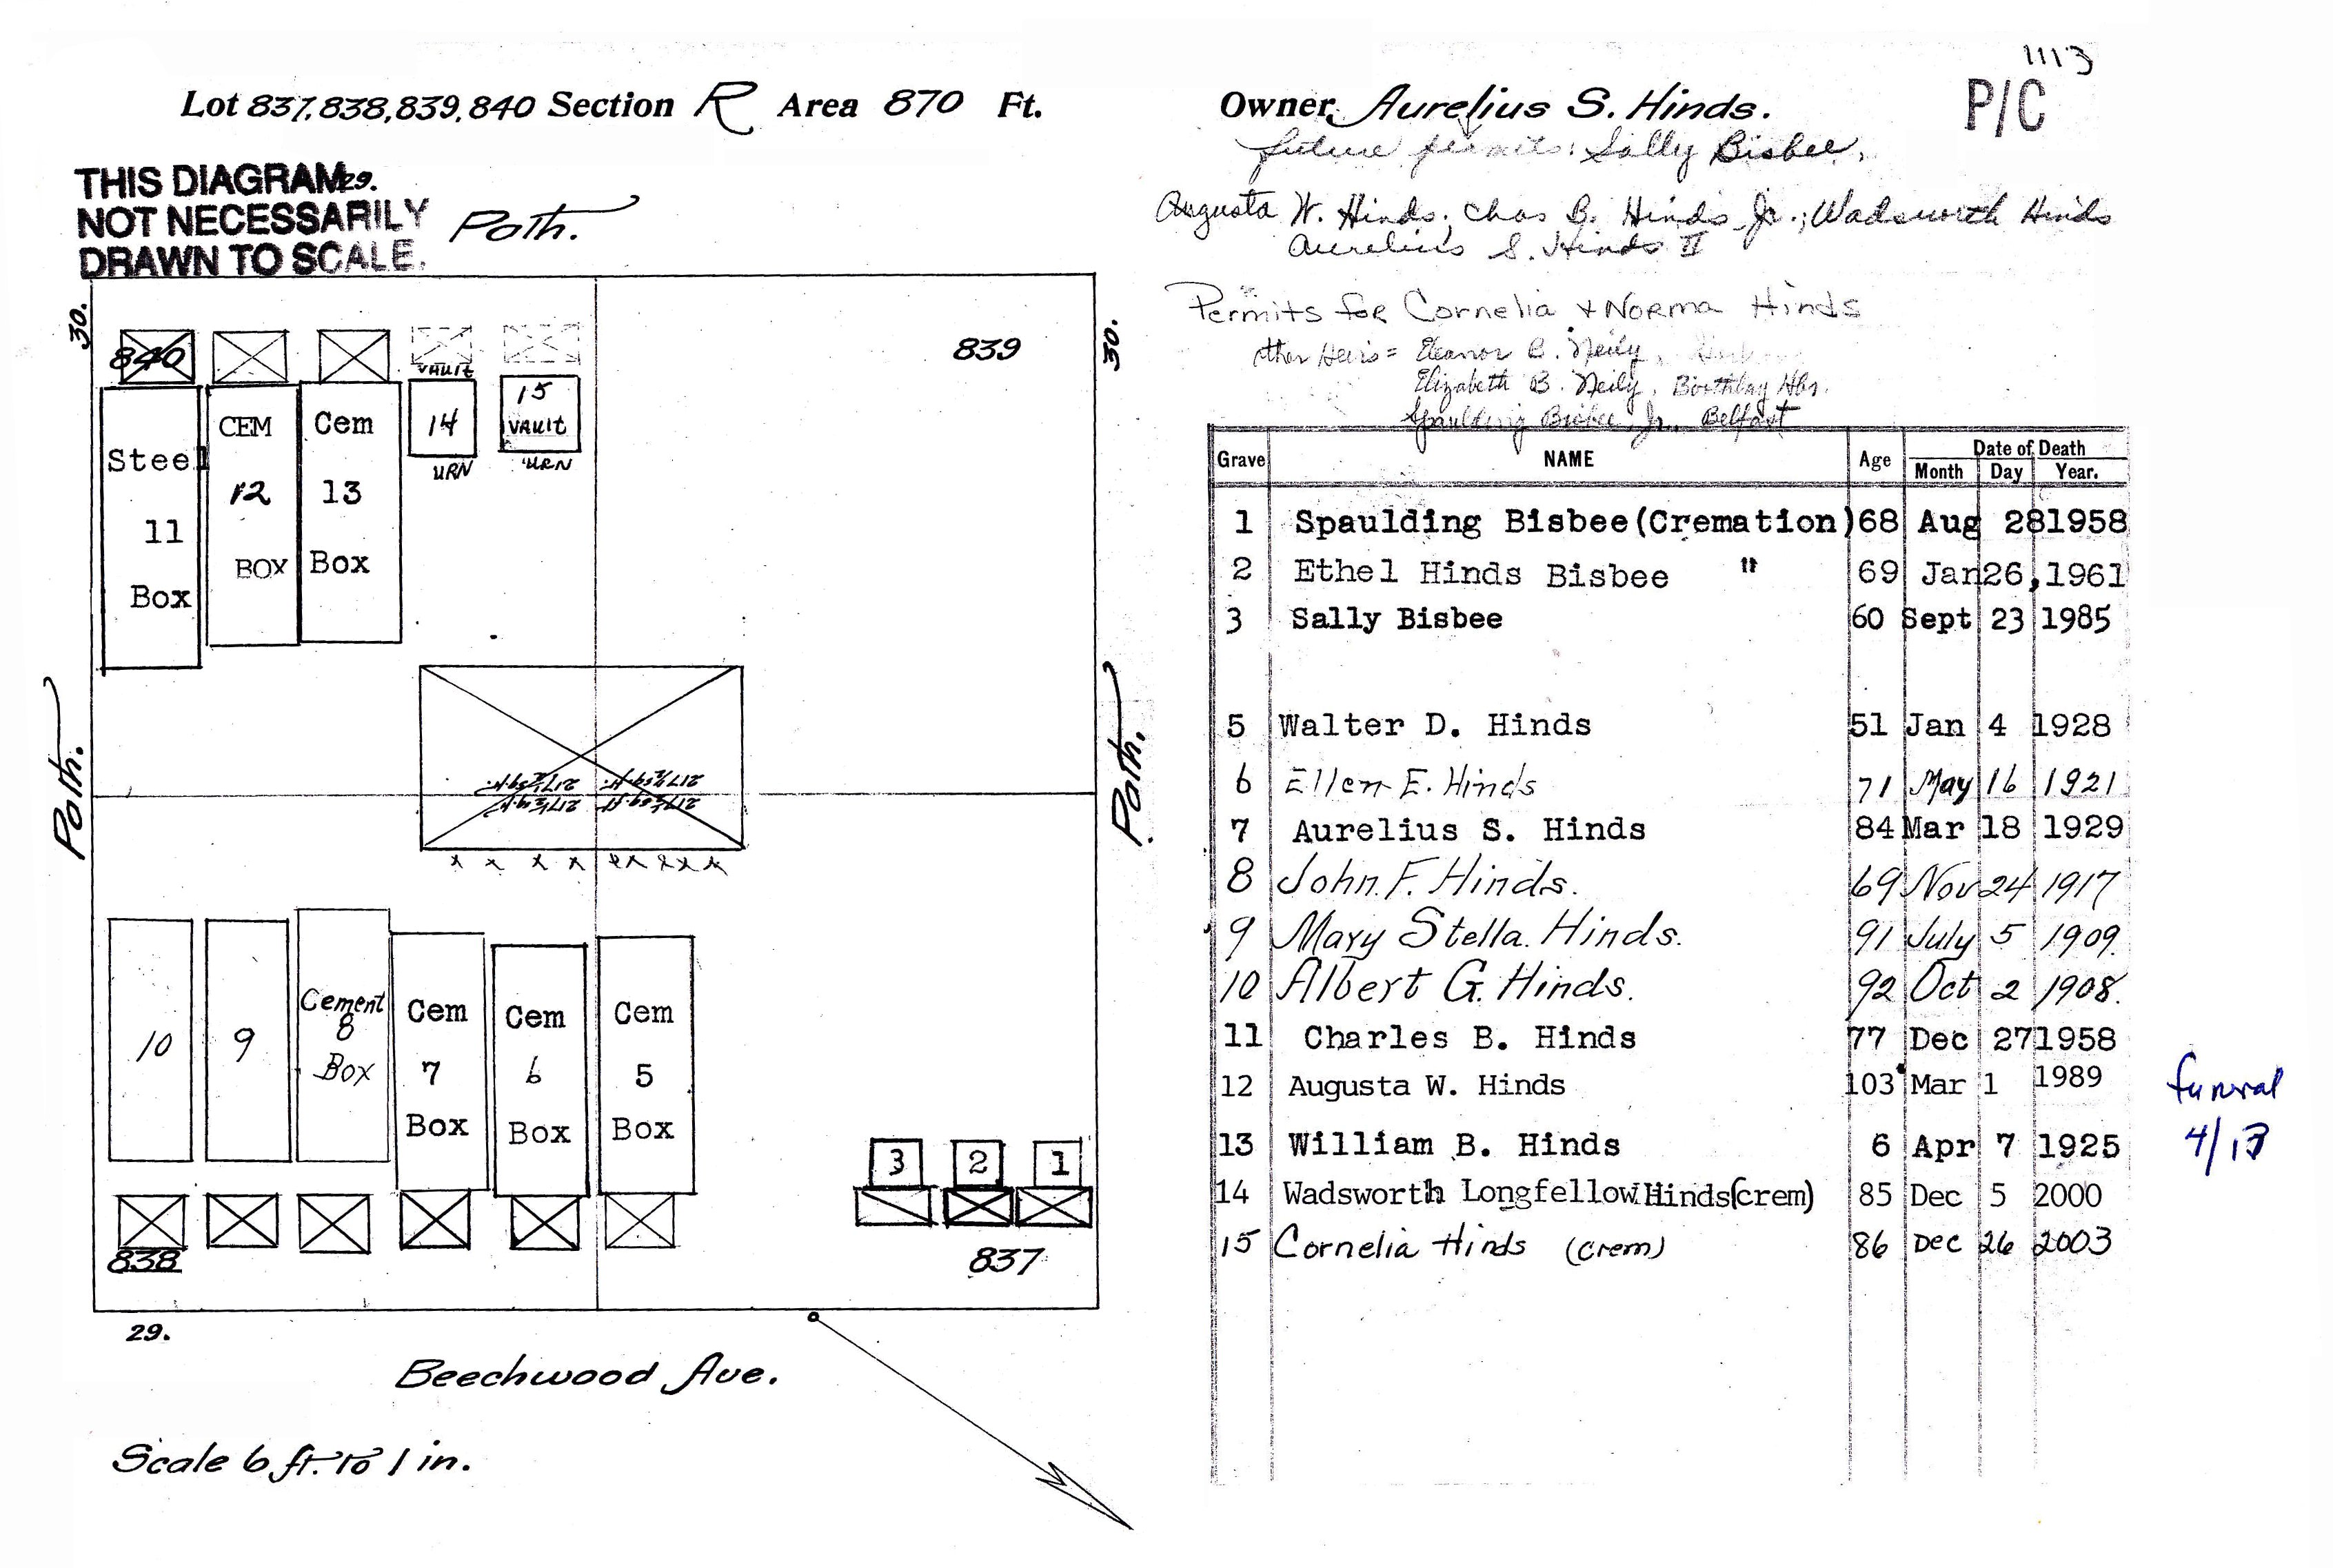 1113
Lot 837, 838, 839, 840 Section R Area 870 Ft.
Owner, Aurelius S. Hinds.
P/C
future permits: Sally Bisbee,
Augusta W. Hinds; Chas B. Hinds Jr.; Wadsworth Hinds
Aurelius S. Hinds II
Permits for Cornelia + Norma Hinds
other Heirs = Eleanor B. Neily,
Elizabeth B. Neily, Boothbay Hbr.
Spaulding Bisbee, Jr., Belfast
THIS DIAGRAM 29.
NOT NECESSARILY
DRAWN TO SCALE.
Path.
30.
30.
840
839
VAULT
Steel
11
Box
CEM
12
BOX
Cem
13
Box
14
URN
15
VAULT
URN
Path.
Path.
217½ sq. ft. 217½ sq. ft.
217½ sq. ft. 217½ sq. ft.
x x x x x x x x x
10
9
Cement
8
Box
Cem
7
Box
Cem
6
Box
Cem
5
Box
3 2 1
838
837
29.
Beechwood Ave.
Scale 6 ft. to 1 in.
Grave NAME Age Date of Death
Month Day Year.
1 Spaulding Bisbee (Cremation) 68 Aug 28 1958
2 Ethel Hinds Bisbee " 69 Jan 26, 1961
3 Sally Bisbee 60 Sept 23 1985
5 Walter D. Hinds 51 Jan 4 1928
6 Ellen E. Hinds 71 May 16 1921
7 Aurelius S. Hinds 84 Mar 18 1929
8 John F. Hinds. 69 Nov 24 1917
9 Mary Stella. Hinds. 91 July 5 1909.
10 Albert G. Hinds. 92 Oct 2 1908.
11 Charles B. Hinds 77 Dec 27 1958
12 Augusta W. Hinds 103 Mar 1 1989
funeral
4/13
13 William B. Hinds 6 Apr 7 1925
14 Wadsworth Longfellow Hinds (crem) 85 Dec 5 2000
15 Cornelia Hinds (crem) 86 Dec 26 2003